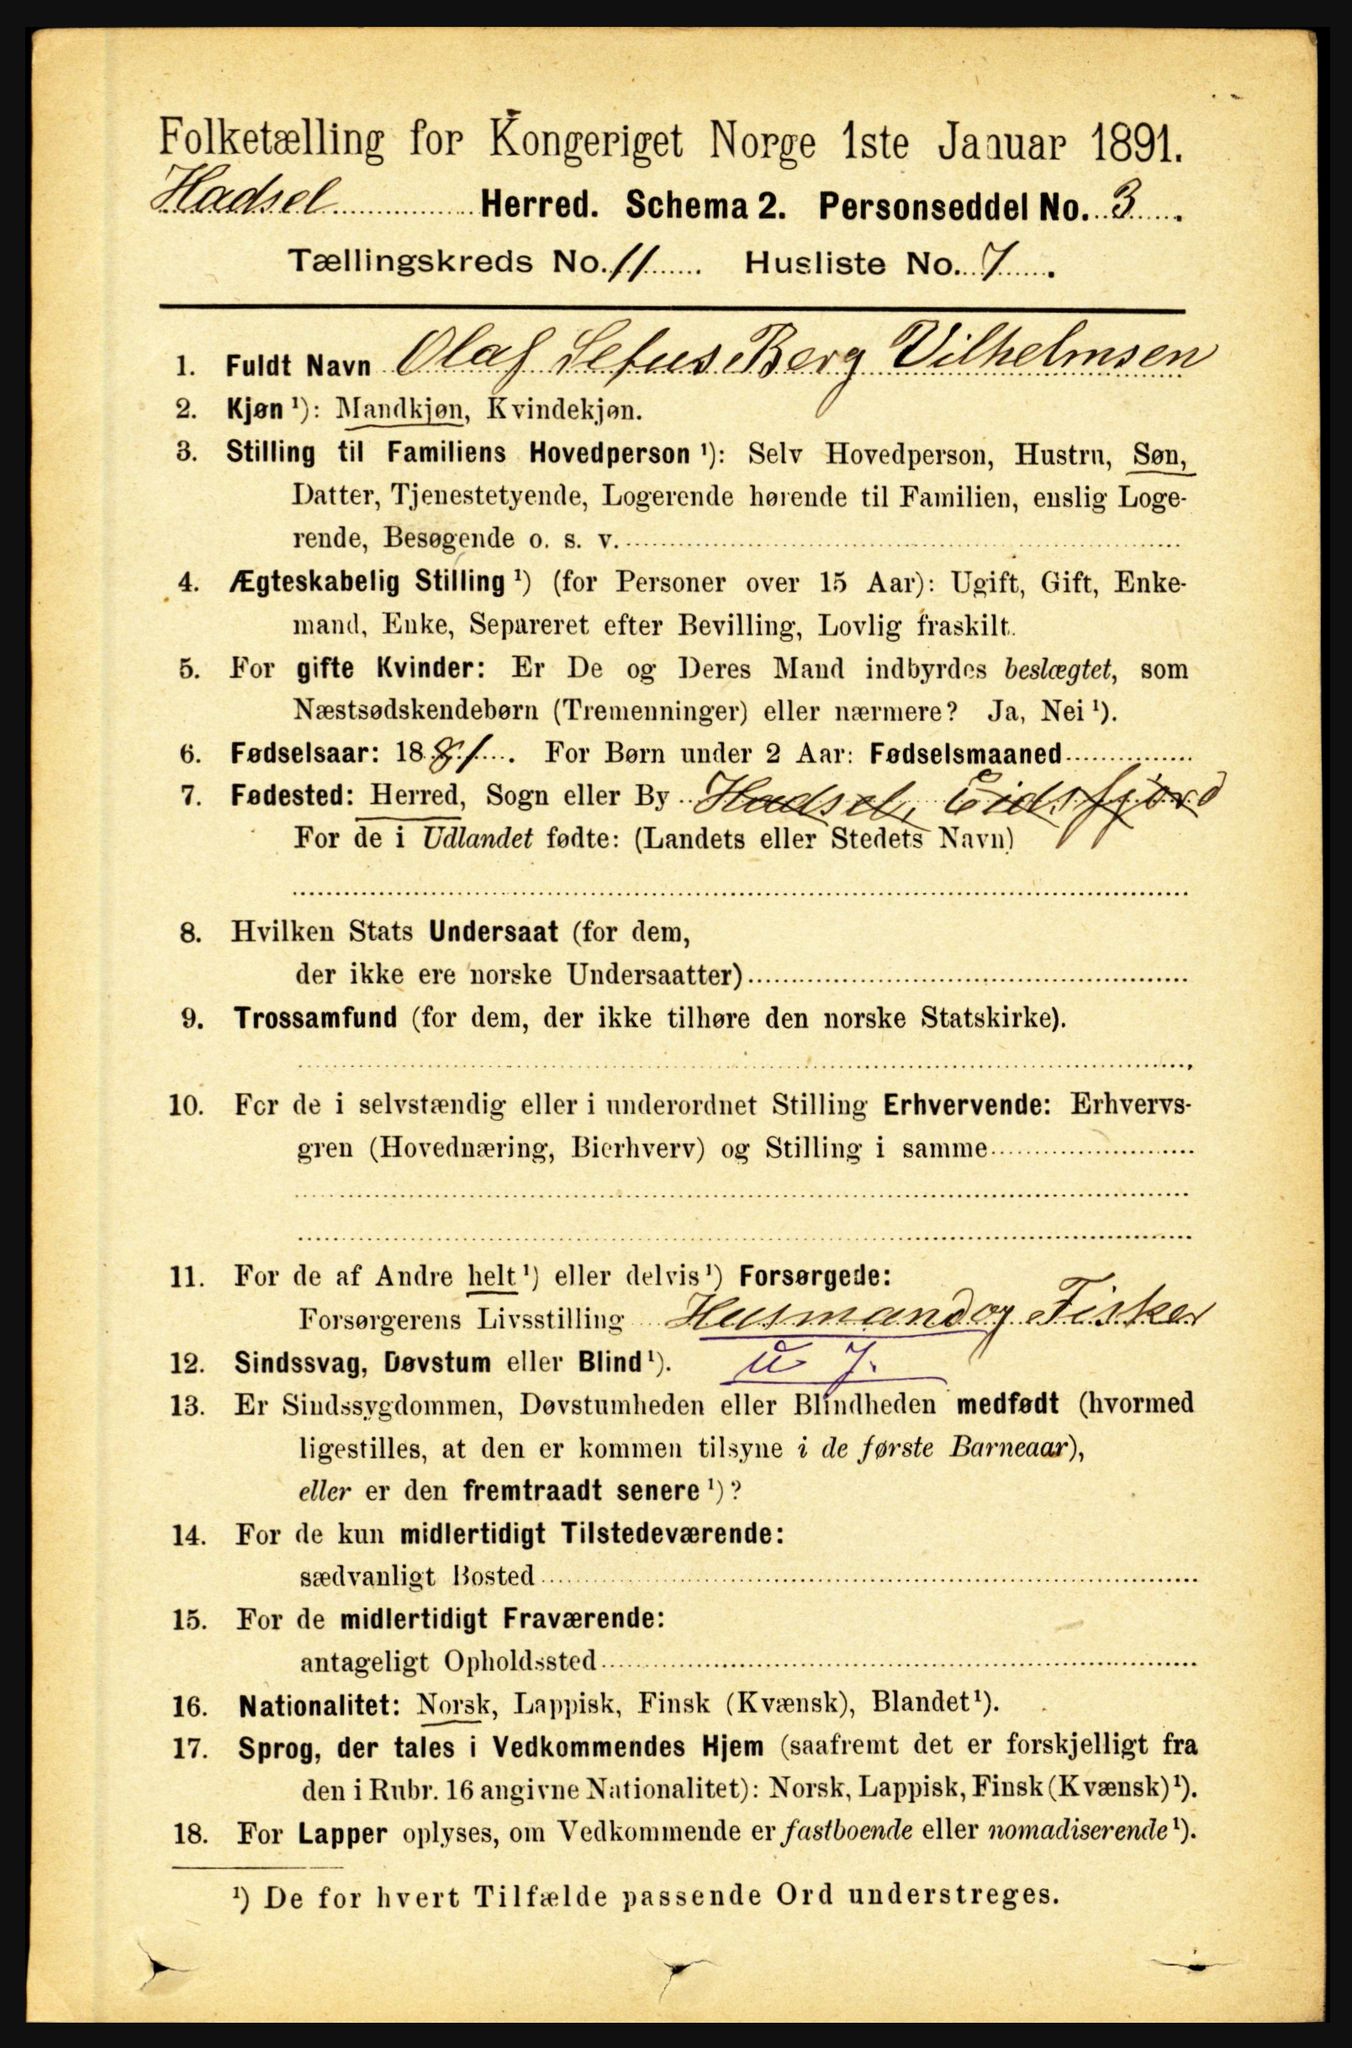 Folketælling for Kongeriget Norge 1ste Januar 1891.
Hadsel Herred. Schema 2. Personseddel No. 3.
Tællingskreds No. 11 Husliste No. 7.
1. Fuldt Navn Olaf Sefus Berg Vilhelmsen
2. Kjøn ¹): Mandkjøn, Kvindekjøn.
3. Stilling til Familiens Hovedperson ¹): Selv Hovedperson, Hustru, Søn,
Datter, Tjenestetyende, Logerende hørende til Familien, enslig Loge-
rende, Besøgende o. s. v.
4. Ægteskabelig Stilling ¹) (for Personer over 15 Aar): Ugift, Gift, Enke-
mand, Enke, Separeret efter Bevilling, Lovlig fraskilt.
5. For gifte Kvinder: Er De og Deres Mand indbyrdes beslægtet, som
Næstsødskendebørn (Tremenninger) eller nærmere? Ja, Nei ¹).
6. Fødselsaar: 1881. For Børn under 2 Aar: Fødselsmaaned
7. Fødested: Herred, Sogn eller By Hadsel, Eidsfjord
For de i Udlandet fødte: (Landets eller Stedets Navn)
8. Hvilken Stats Undersaat (for dem,
der ikke ere norske Undersaatter)
9. Trossamfund (for dem, der ikke tilhøre den norske Statskirke).
10. For de i selvstændig eller i underordnet Stilling Erhvervende: Erhvervs-
gren (Hovednæring, Bierhverv) og Stilling i samme
11. For de af Andre helt ¹) eller delvis ¹) Forsørgede:
Forsørgerens Livsstilling Husmand og Fisker
12. Sindssvag, Døvstum eller Blind ¹). u J.
13. Er Sindssygdommen, Døvstumheden eller Blindheden medfødt (hvormed
ligestilles, at den er kommen tilsyne i de første Barneaar),
eller er den fremtraadt senere ¹)?
14. For de kun midlertidigt Tilstedeværende:
sædvanligt Bosted
15. For de midlertidigt Fraværende:
antageligt Opholdssted
16. Nationalitet: Norsk, Lappisk, Finsk (Kvænsk), Blandet ¹).
17. Sprog, der tales i Vedkommendes Hjem (saafremt det er forskjelligt fra
den i Rubr. 16 angivne Nationalitet): Norsk, Lappisk, Finsk (Kvænsk) ¹).
18. For Lapper oplyses, om Vedkommende er fastboende eller nomadiserende ¹).
¹) De for hvert Tilfælde passende Ord understreges.